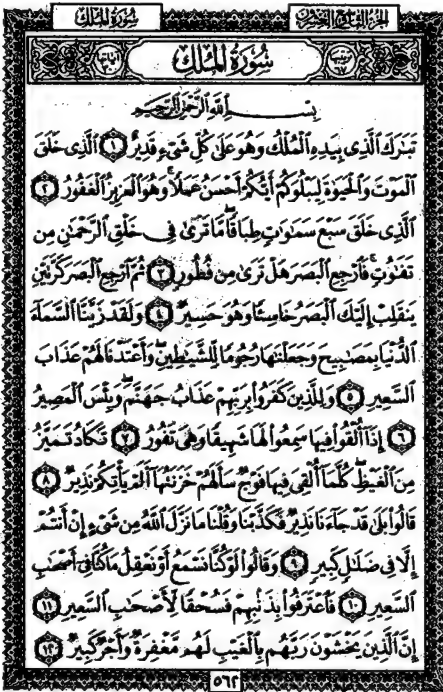 سُورَةُ المُلْكِ
الجُزْءُ التَّاسِعُ وَالعِشْرُونَ
سُورَةُ المُلْكِ
بِسْمِ اللَّهِ الرَّحْمَٰنِ الرَّحِيمِ
تَبَٰرَكَ ٱلَّذِى بِيَدِهِ ٱلْمُلْكُ وَهُوَ عَلَىٰ كُلِّ شَىْءٍ قَدِيرٌ ١ ٱلَّذِى خَلَقَ
ٱلْمَوْتَ وَٱلْحَيَوٰةَ لِيَبْلُوَكُمْ أَيُّكُمْ أَحْسَنُ عَمَلًا وَهُوَ ٱلْعَزِيزُ ٱلْغَفُورُ ٢
ٱلَّذِى خَلَقَ سَبْعَ سَمَٰوَٰتٍ طِبَاقًا مَّا تَرَىٰ فِى خَلْقِ ٱلرَّحْمَٰنِ مِن
تَفَٰوُتٍ فَٱرْجِعِ ٱلْبَصَرَ هَلْ تَرَىٰ مِن فُطُورٍ ٣ ثُمَّ ٱرْجِعِ ٱلْبَصَرَ كَرَّتَيْنِ
يَنقَلِبْ إِلَيْكَ ٱلْبَصَرُ خَاسِئًا وَهُوَ حَسِيرٌ ٤ وَلَقَدْ زَيَّنَّا ٱلسَّمَآءَ
ٱلدُّنْيَا بِمَصَٰبِيحَ وَجَعَلْنَٰهَا رُجُومًا لِّلشَّيَٰطِينِ وَأَعْتَدْنَا لَهُمْ عَذَابَ
ٱلسَّعِيرِ ٥ وَلِلَّذِينَ كَفَرُوا۟ بِرَبِّهِمْ عَذَابُ جَهَنَّمَ وَبِئْسَ ٱلْمَصِيرُ
٦ إِذَآ أُلْقُوا۟ فِيهَا سَمِعُوا۟ لَهَا شَهِيقًا وَهِىَ تَفُورُ ٧ تَكَادُ تَمَيَّزُ
مِنَ ٱلْغَيْظِ كُلَّمَآ أُلْقِىَ فِيهَا فَوْجٌ سَأَلَهُمْ خَزَنَتُهَآ أَلَمْ يَأْتِكُمْ نَذِيرٌ ٨
قَالُوا۟ بَلَىٰ قَدْ جَآءَنَا نَذِيرٌ فَكَذَّبْنَا وَقُلْنَا مَا نَزَّلَ ٱللَّهُ مِن شَىْءٍ إِنْ أَنتُمْ
إِلَّا فِى ضَلَٰلٍ كَبِيرٍ ٩ وَقَالُوا۟ لَوْ كُنَّا نَسْمَعُ أَوْ نَعْقِلُ مَا كُنَّا فِىٓ أَصْحَٰبِ
ٱلسَّعِيرِ ١٠ فَٱعْتَرَفُوا۟ بِذَنۢبِهِمْ فَسُحْقًا لِّأَصْحَٰبِ ٱلسَّعِيرِ ١١
إِنَّ ٱلَّذِينَ يَخْشَوْنَ رَبَّهُم بِٱلْغَيْبِ لَهُم مَّغْفِرَةٌ وَأَجْرٌ كَبِيرٌ ١٢
٥٦٢